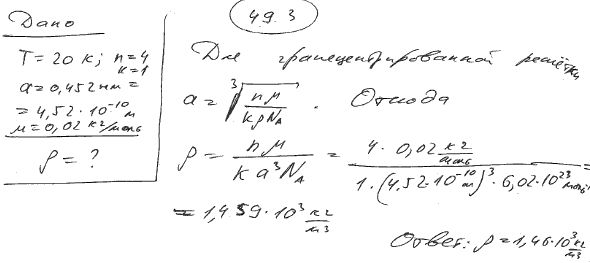 49.3
Дано
T = 20 К; n = 4
k = 1
a = 0,452 нм =
= 4,52 · 10⁻¹⁰ м
μ = 0,02 кг/моль
ρ = ?
Для гранецентрированной решётки
a = ∛(nμ / kρN_A) . Отсюда
ρ = nμ / ka³N_A = 4 · 0,02 кг/моль / 1 · (4,52 · 10⁻¹⁰ м)³ · 6,02 · 10²³ моль⁻¹ =
= 1,459 · 10³ кг/м³
Ответ: ρ = 1,46 · 10³ кг/м³